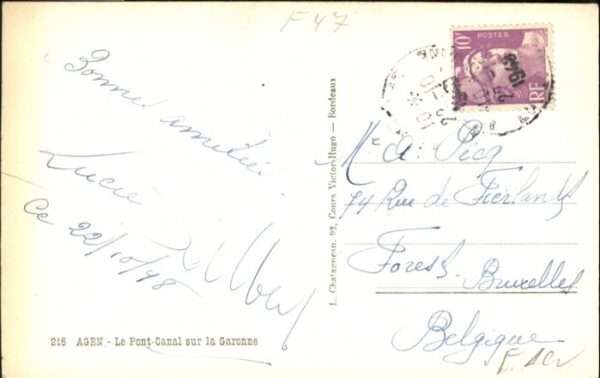 F 47
Bonnes amitiés
Lucie
Ce 22/10/48
216 AGEN - Le Pont-Canal sur la Garonne
L. Chatagneau, 92, Cours Victor-Hugo — Bordeaux
10F
POSTES
RF
1948
A. Picq
74 Rue de Fierlant
Forest-Bruxelles
Belgique